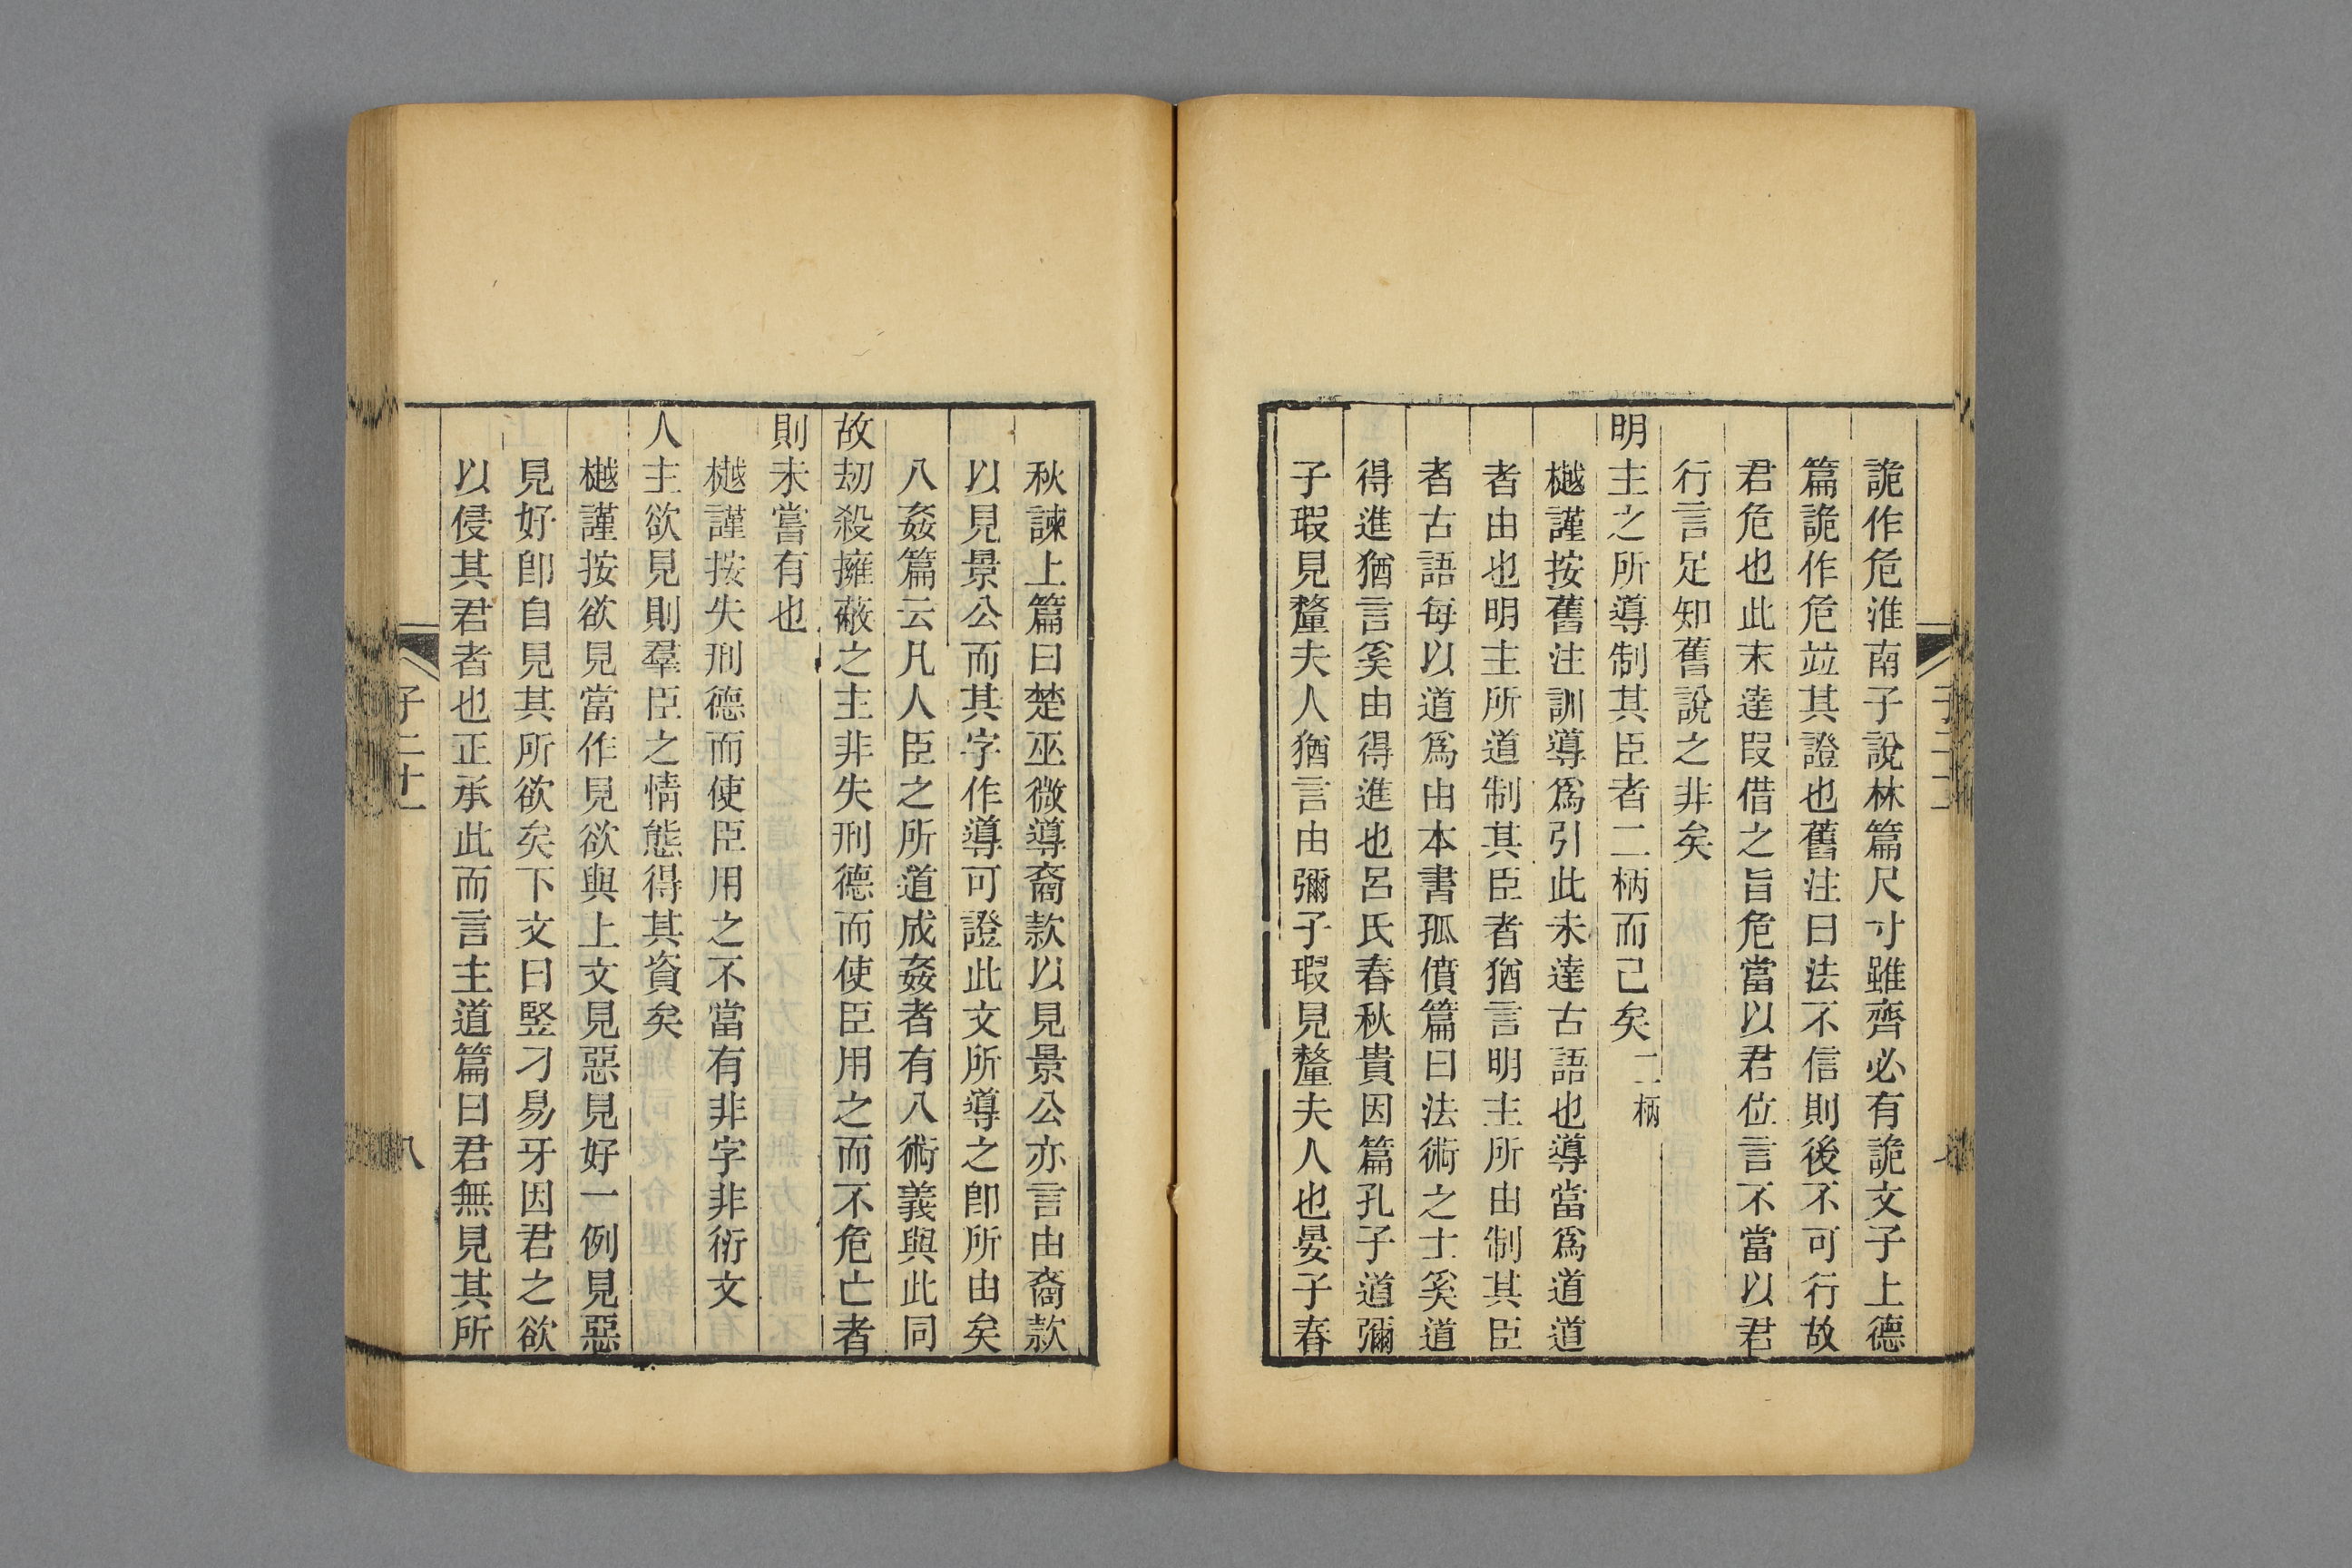 詭作危淮南子說林篇尺寸雖齊必有詭文子上德
篇詭作危竝其證也舊注曰法不信則後不可行故
君危也此末達叚借之旨危當以君位言不當以君
行言足知舊說之非矣
明主之所導制其臣者二柄而已矣二柄
樾謹按舊注訓導爲引此未達古語也導當爲道道
者由也明主所道制其臣者猶言明主所由制其臣
者古語每以道爲由本書孤憤篇曰法術之士奚道
得進猶言奚由得進也呂氏春秋貴因篇孔子道彌
子瑕見釐夫人猶言由彌子瑕見釐夫人也晏子春
秋諫上篇曰楚巫微導裔款以見景公亦言由裔款
以見景公而其字作導可證此文所導之卽所由矣
八姦篇云凡人臣之所道成姦者有八術義與此同
故劫殺擁蔽之主非失刑德而使臣用之而不危亡者
則未嘗有也
樾謹按失刑德而使臣用之不當有非字非衍文
人主欲見則羣臣之情態得其資矣
樾謹按欲見當作見欲與上文見惡見好一例見惡
見好卽自見其所欲矣下文曰竪刁易牙因君之欲
以侵其君者也正承此而言主道篇曰君無見其所
子二十一
八